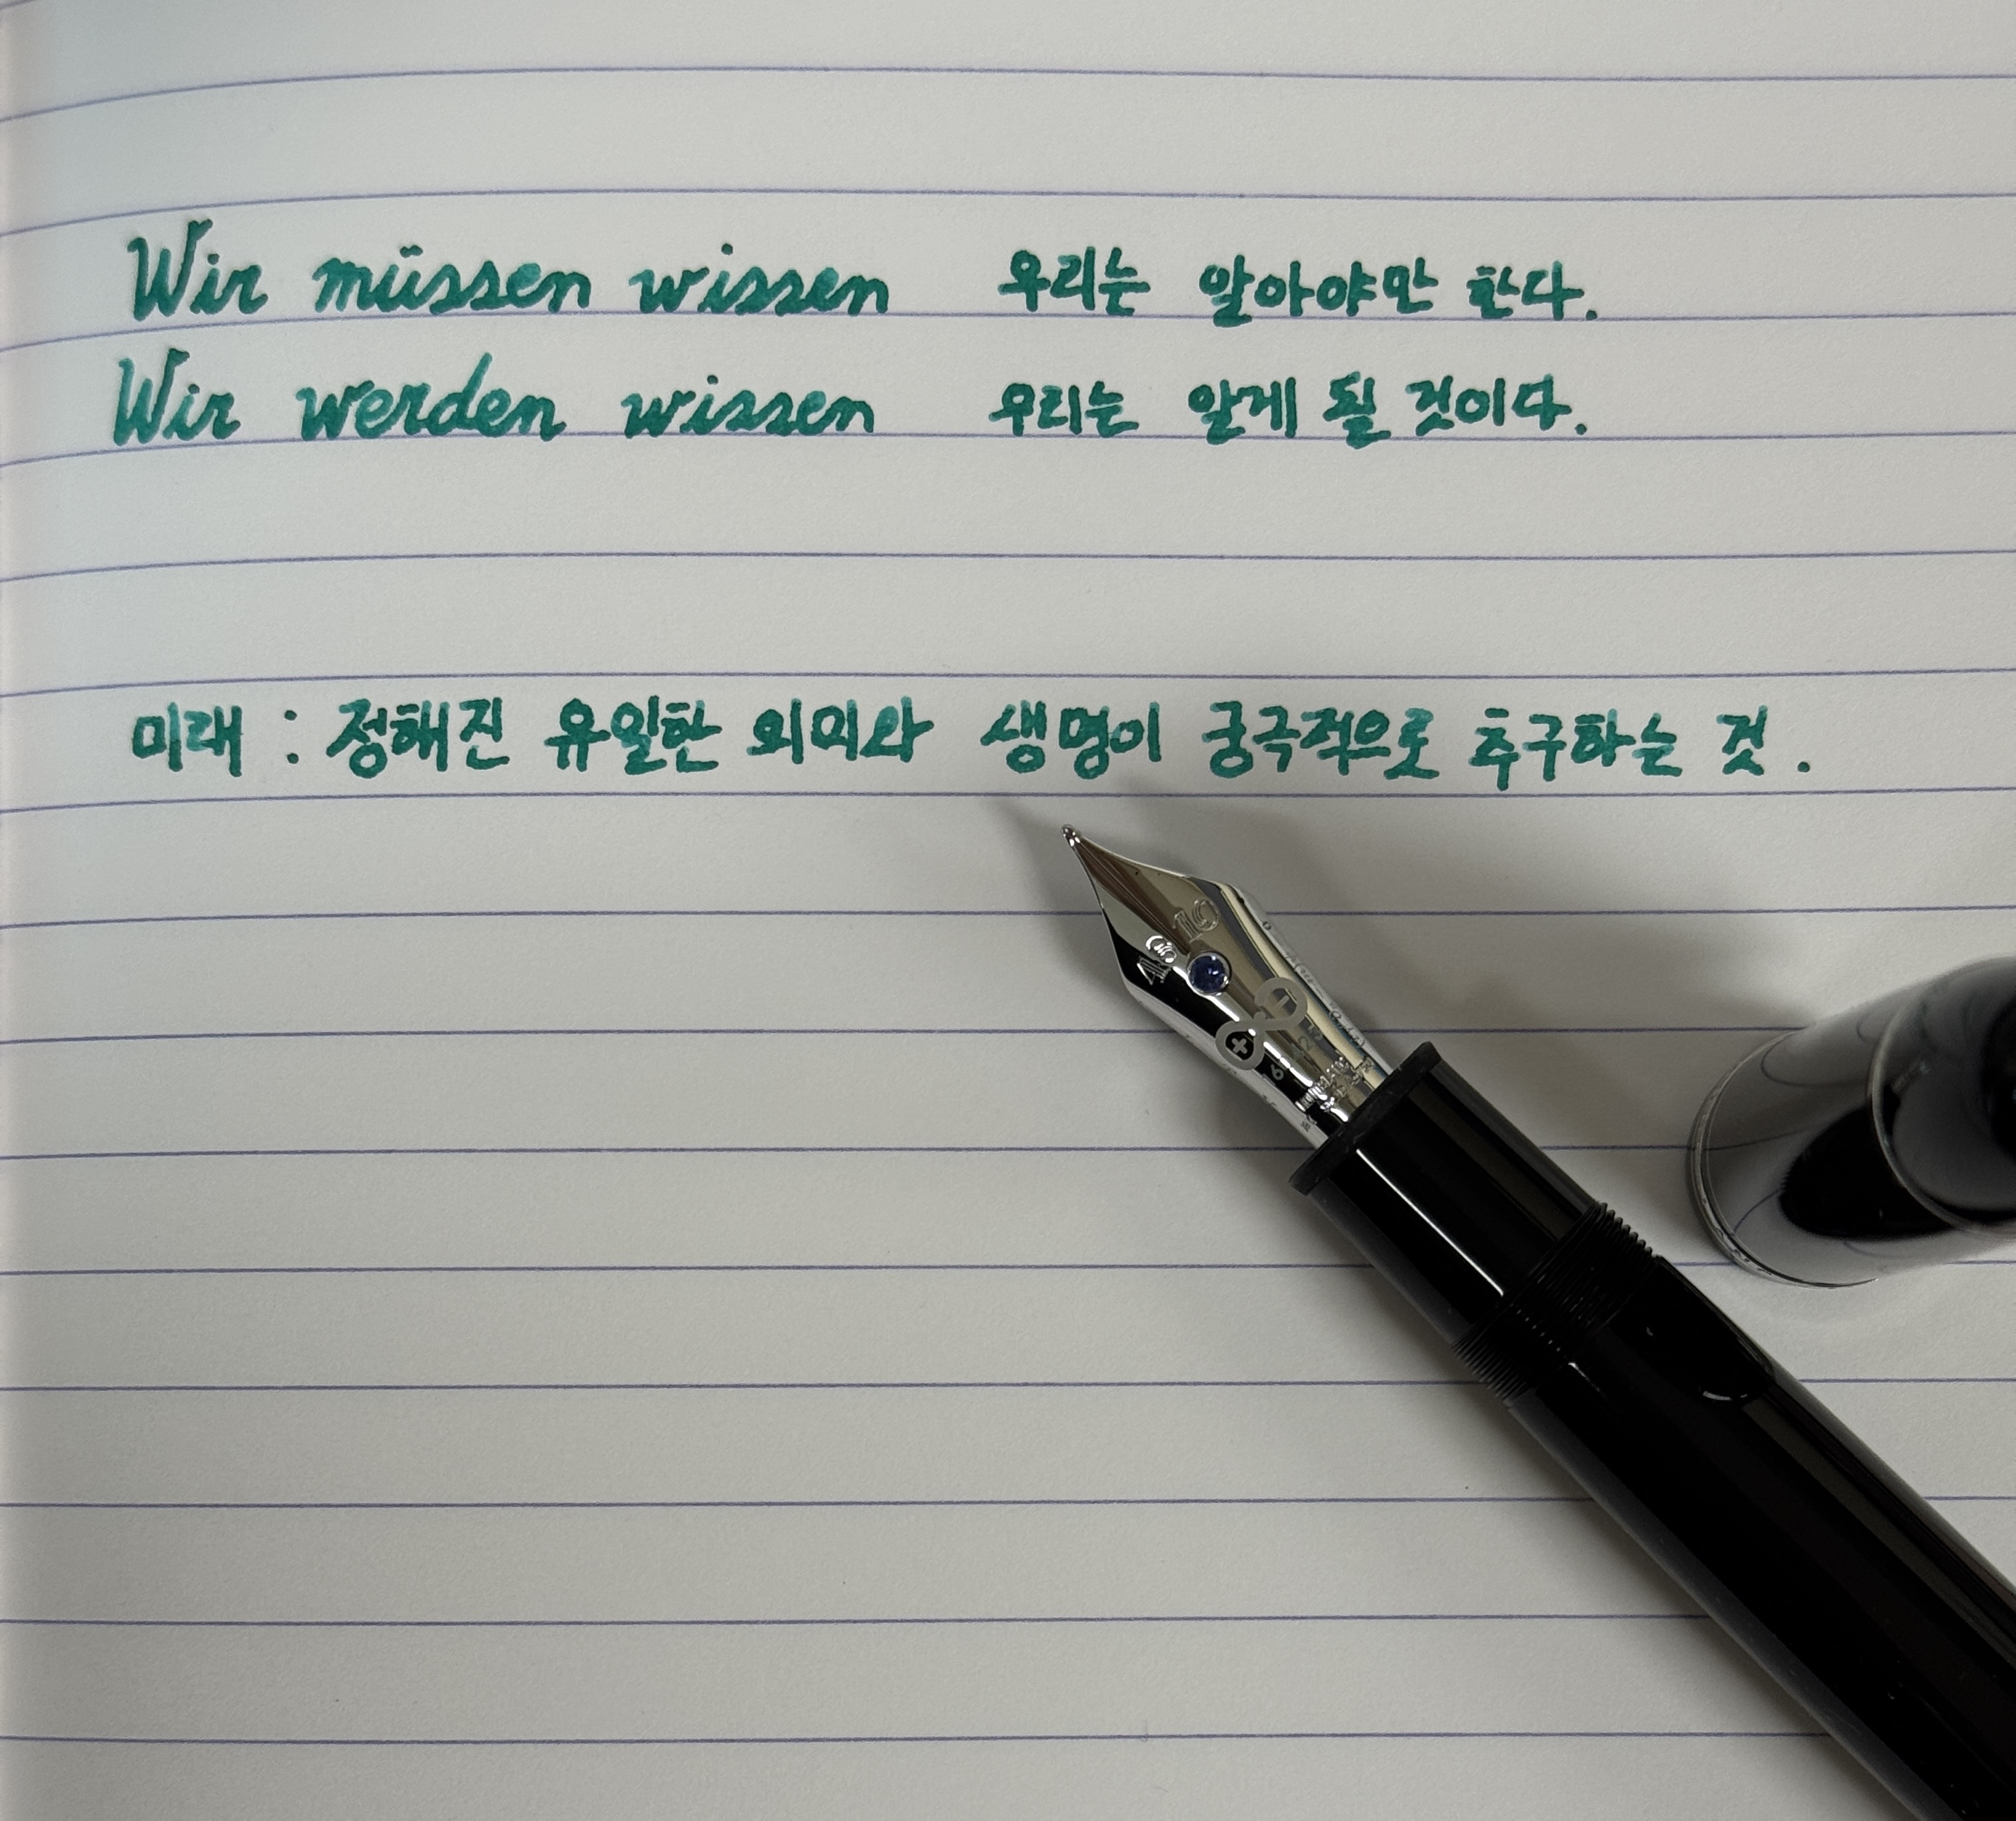 Wir müssen wissen 우리는 알아야만 한다.
Wir werden wissen 우리는 알게 될 것이다.
미래 : 정해진 유일한 의미와 생명이 궁극적으로 추구하는 것.